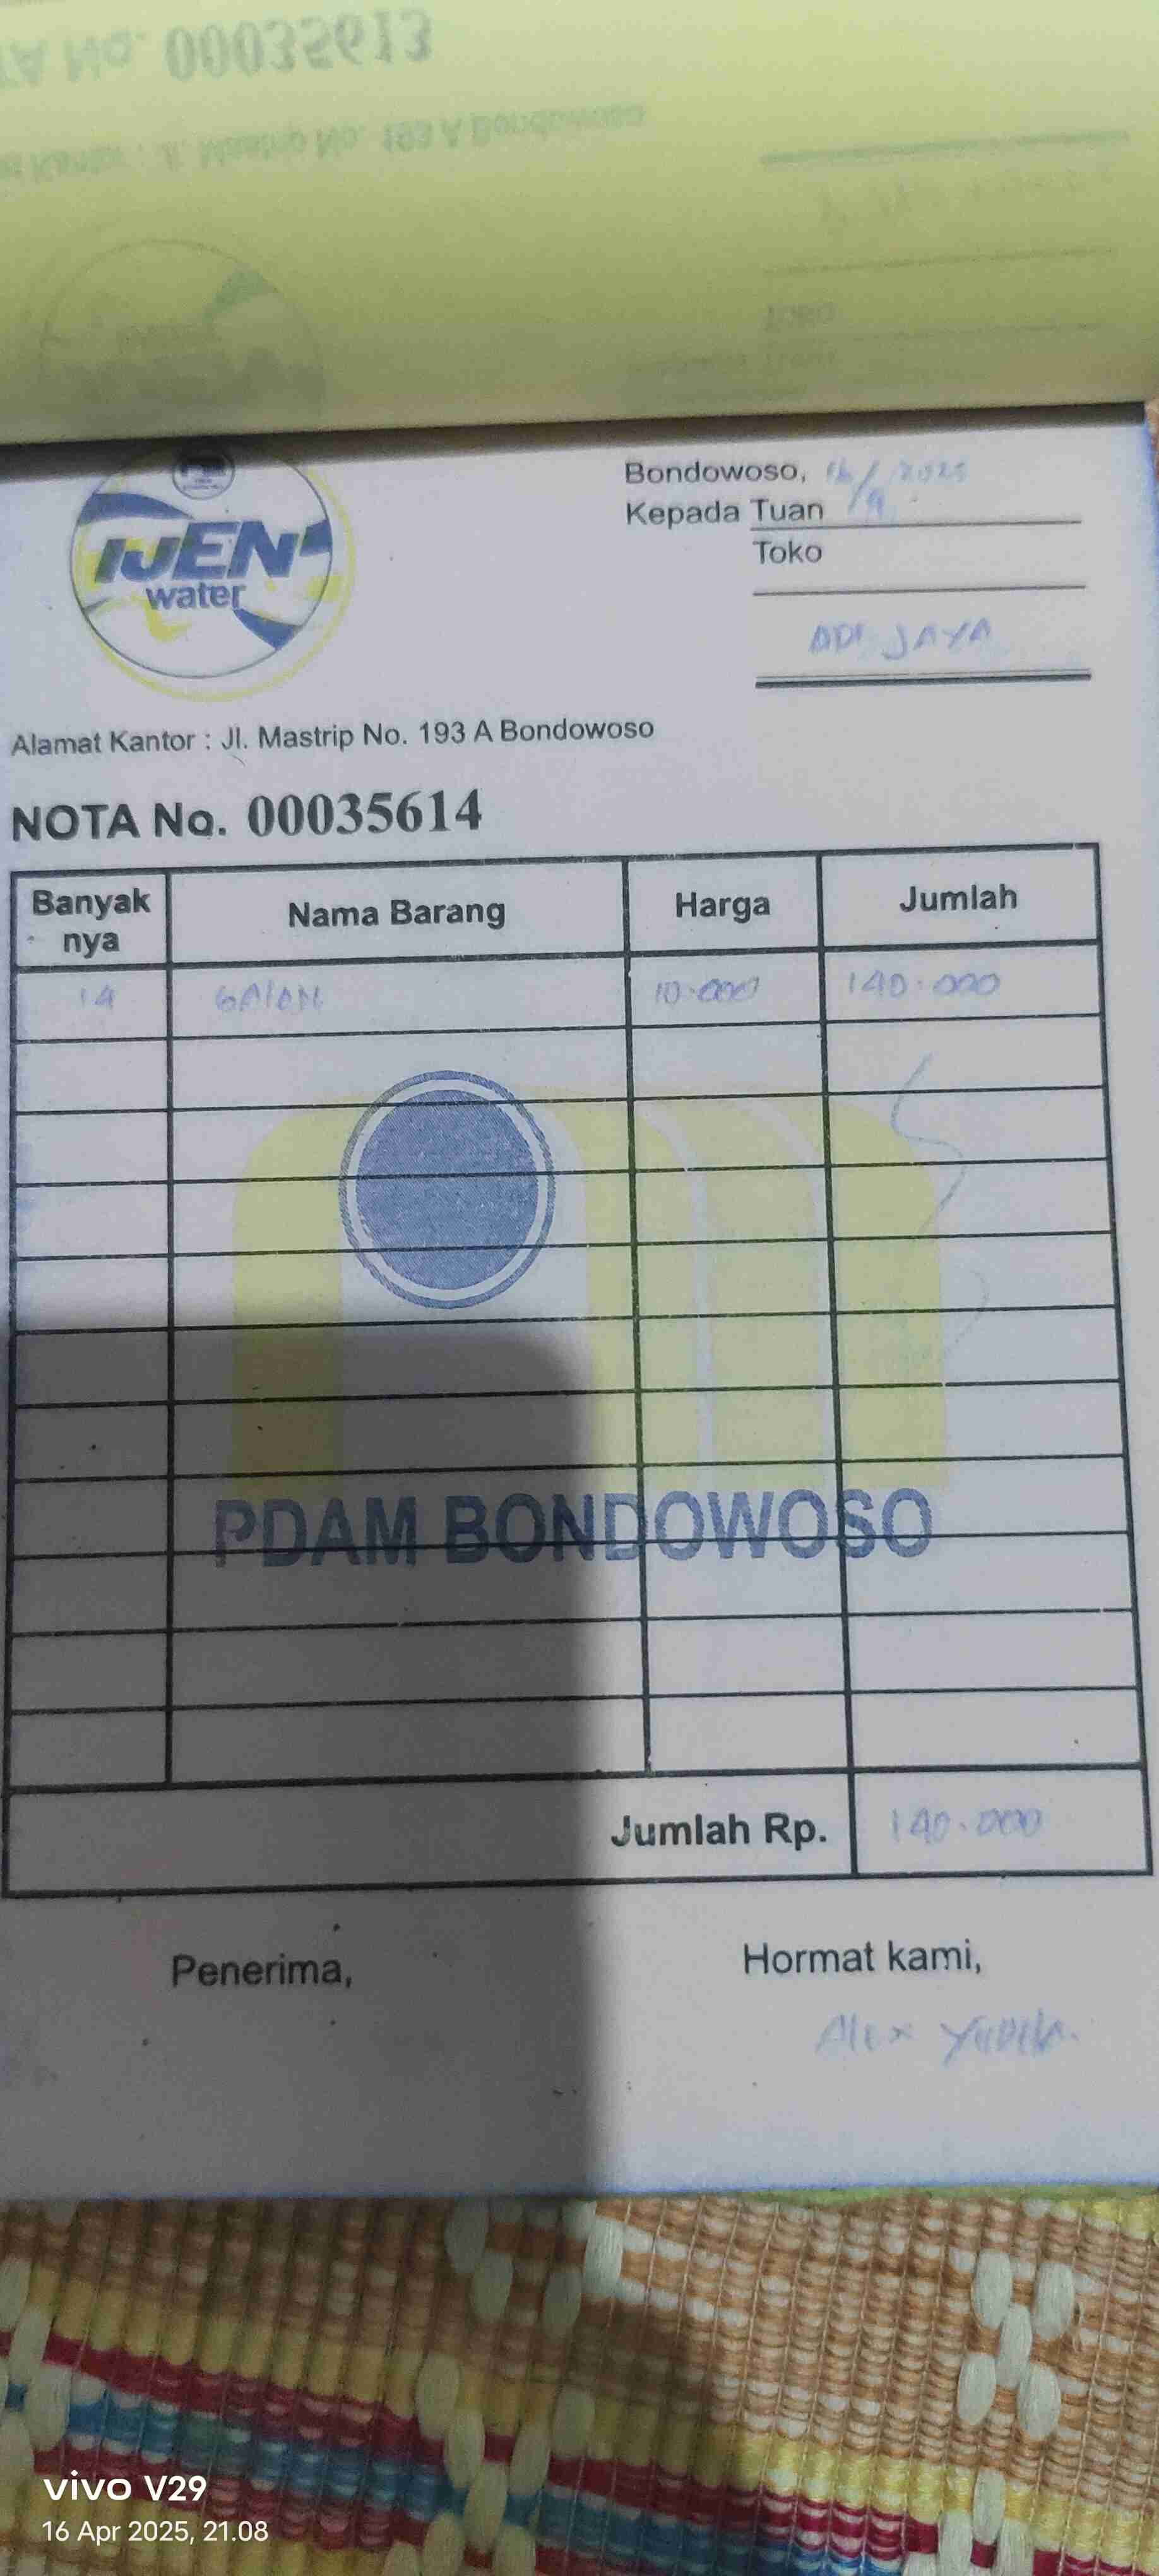 TA No. 00035613
Kantor : Jl. Mastrip No. 193 A Bondowoso
IJEN
water
Bondowoso, 16/4 2025
Kepada Tuan
Toko
ADI JAYA
Alamat Kantor : Jl. Mastrip No. 193 A Bondowoso
NOTA No. 00035614
Banyak nya Nama Barang Harga Jumlah
14 GAlON 10.000 140.000
PDAM BONDOWOSO
Jumlah Rp. 140.000
Penerima, Hormat kami,
Alex
vivo V29
16 Apr 2025, 21.08